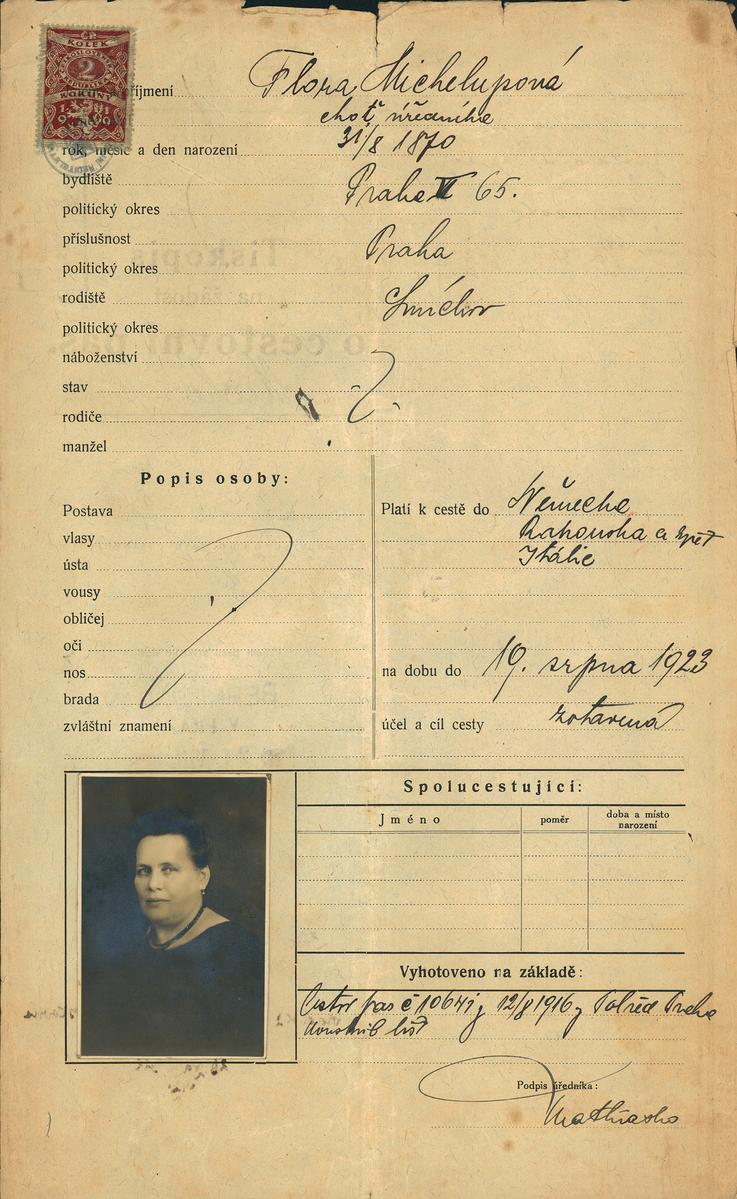 KOLEK
2
KORUNY
příjmení Flora Michelupová
choť úředního
rok, měsíc a den narození 31/8 1870
bydliště Praha II 65.
politický okres
příslušnost Praha
politický okres
rodiště Smíchov
politický okres
náboženství
stav
rodiče
manžel
Popis osoby:
Postava
vlasy
ústa
vousy
obličej
oči
nos
brada
zvláštní znamení
Platí k cestě do Německa
Rakouska a zpět
Itálie
na dobu do 19. srpna 1923
účel a cíl cesty zotavená
Spolucestující:
Jméno poměr doba a místo
narození
Vyhotoveno na základě:
Cestov pas č 10641 z 12/8 1916 Polřed Praha
list
Podpis úředníka: